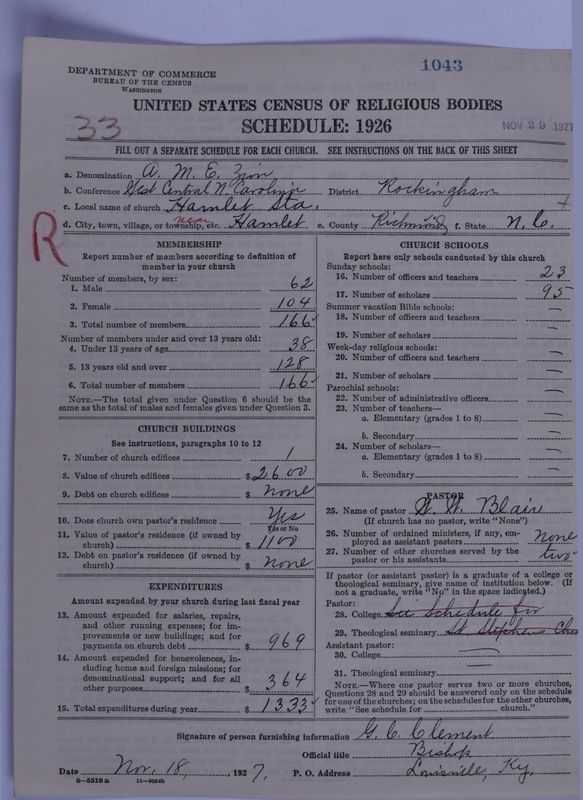 1043
DEPARTMENT OF COMMERCE
BUREAU OF THE CENSUS
WASHINGTON
UNITED STATES CENSUS OF RELIGIOUS BODIES
33 SCHEDULE: 1926 NOV 29 1927
FILL OUT A SEPARATE SCHEDULE FOR EACH CHURCH. SEE INSTRUCTIONS ON THE BACK OF THIS SHEET
a. Denomination A. M. E. Zion
b. Conference West Central N. Carolina District Rockingham
c. Local name of church Hamlet Sta. +
d. City, town, village, or township, etc. near Hamlet e. County Richmond f. State N. C.
R
MEMBERSHIP
Report number of members according to definition of
member in your church
Number of members, by sex:
1. Male 62
2. Female 104
3. Total number of members 166
Number of members under and over 13 years old:
4. Under 13 years of age 38
5. 13 years old and over 128
6. Total number of members 166
NOTE.—The total given under Question 6 should be the
same as the total of males and females given under Question 3.
CHURCH BUILDINGS
See instructions, paragraphs 10 to 12
7. Number of church edifices 1
8. Value of church edifices $2600
9. Debt on church edifices $ none
10. Does church own pastor's residence Yes
Yes or No
11. Value of pastor's residence (if owned by
church) $ 1100
12. Debt on pastor's residence (if owned by
church) $ none
EXPENDITURES
Amount expended by your church during last fiscal year
13. Amount expended for salaries, repairs,
and other running expenses; for im-
provements or new buildings; and for
payments on church debt $ 969
14. Amount expended for benevolences, in-
cluding home and foreign missions; for
denominational support; and for all
other purposes $ 364
15. Total expenditures during year $ 1333
CHURCH SCHOOLS
Report here only schools conducted by this church
Sunday schools:
16. Number of officers and teachers 23
17. Number of scholars 95
Summer vacation Bible schools:
18. Number of officers and teachers —
19. Number of scholars —
Week-day religious schools:
20. Number of officers and teachers —
21. Number of scholars —
Parochial schools:
22. Number of administrative officers —
23. Number of teachers—
a. Elementary (grades 1 to 8) —
b. Secondary —
24. Number of scholars—
a. Elementary (grades 1 to 8) —
b. Secondary —
PASTOR
25. Name of pastor W. W. Blair
(If church has no pastor, write "None")
26. Number of ordained ministers, if any, em-
ployed as assistant pastors none
27. Number of other churches served by the
pastor or his assistants two
If pastor (or assistant pastor) is a graduate of a college or
theological seminary, give name of institution below. (If
not a graduate, write "No" in the space indicated.)
Pastor:
28. College See Schedule for
29. Theological seminary St Stephens
Assistant pastor:
30. College —
31. Theological seminary —
NOTE.—Where one pastor serves two or more churches,
Questions 28 and 29 should be answered only on the schedule
for one of the churches; on the schedules for the other churches,
write "See schedule for church."
Signature of person furnishing information G. C. Clement
Official title Bishop
Date Nov. 18, 1927, P. O. Address Louisville, Ky.